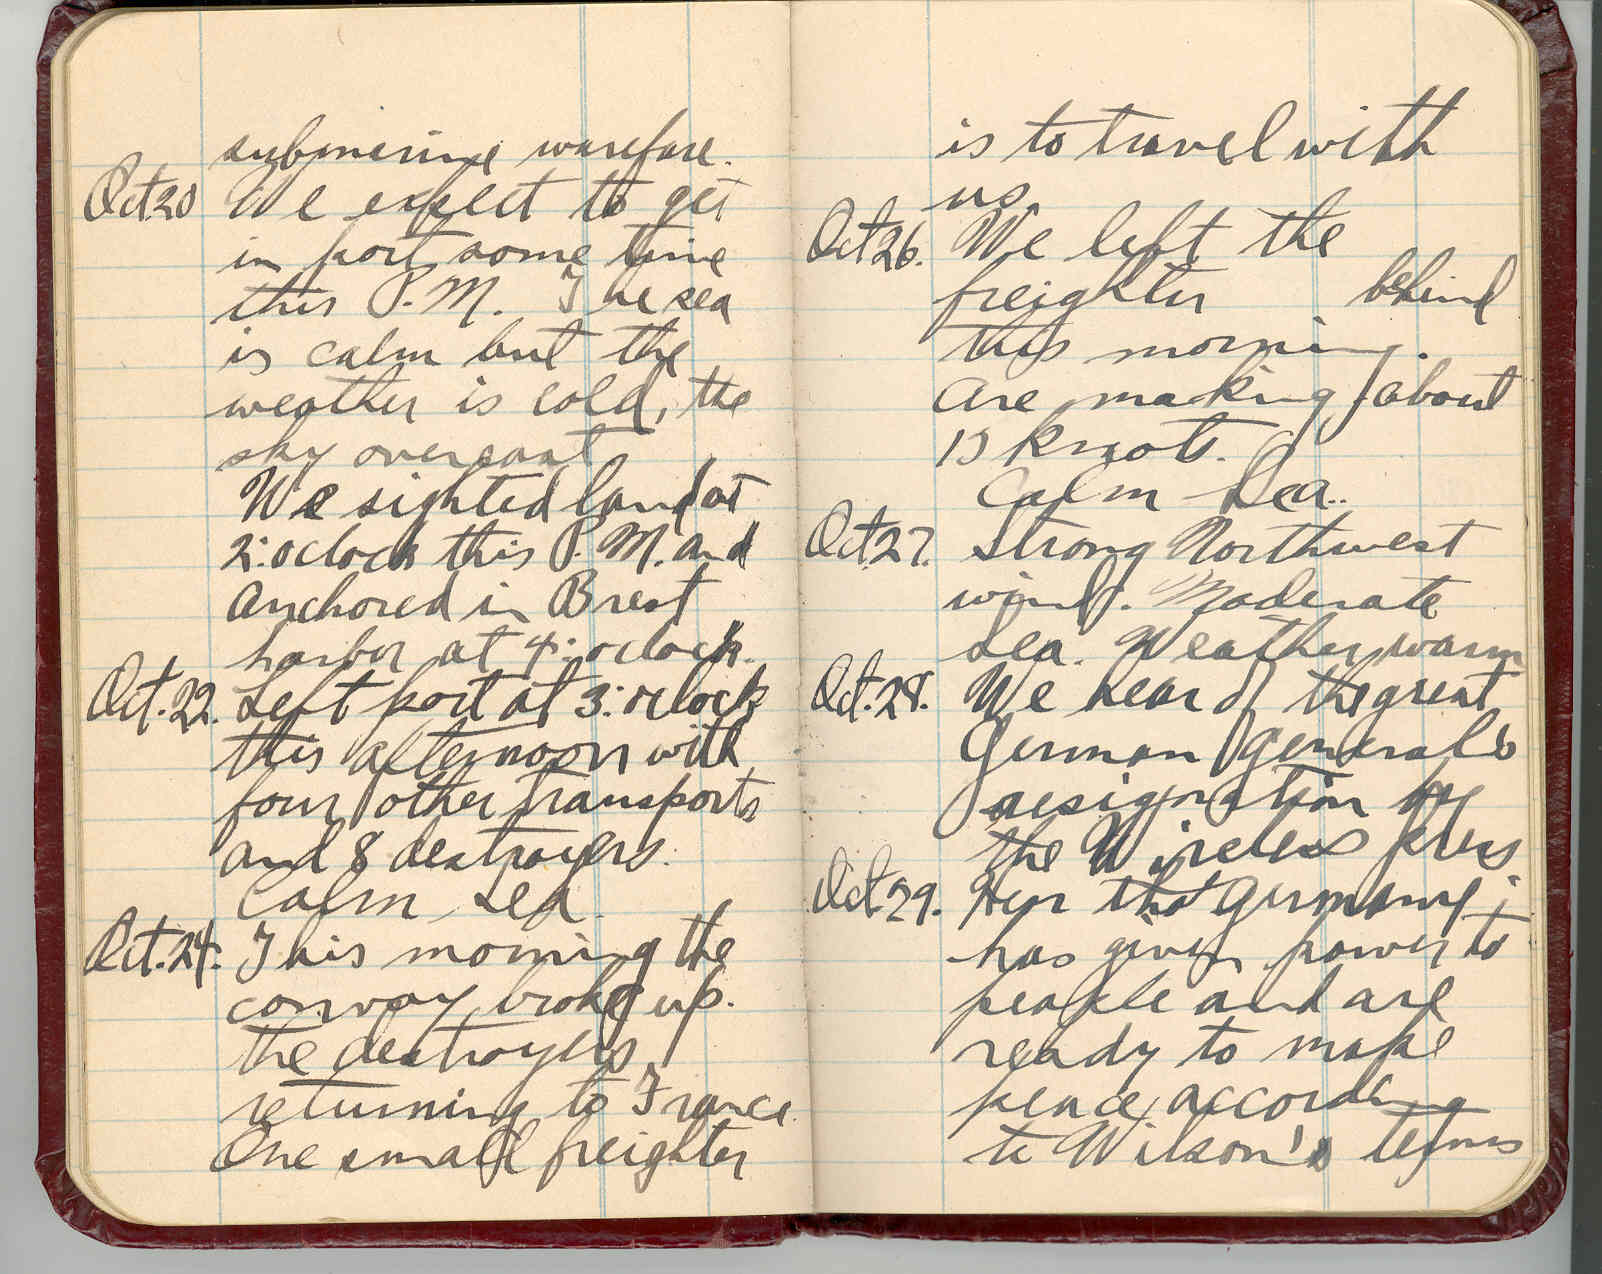 submerine warefare.
Oct 20 We expect to get
in port some time
this P.M. The sea
is calm but the
weather is cold, the
sky overcast
We sighted land at
2: oclock this P.M. and
anchored in Brest
harbor at 4: oclock.
Oct. 22. Left port at 3: oclock
this afternoon with
four other transports
and 8 destroyers.
Calm sea.
Oct. 24. This morning the
convoy broke up.
the destroyers
returning to France.
One small freighter
is to travel with
us.
Oct 26. We left the
freighter behind
this morning.
are making about
15 knots.
Calm Sea..
Oct 27. Strong Northwest
wind. Moderate
sea. Weather warm
Oct. 28. We hear of the great
German generals
resignation by
the Wireless press
Oct. 29. Hear that Germany
has given power to
people and are
ready to make
peace, according
to Wilson's terms